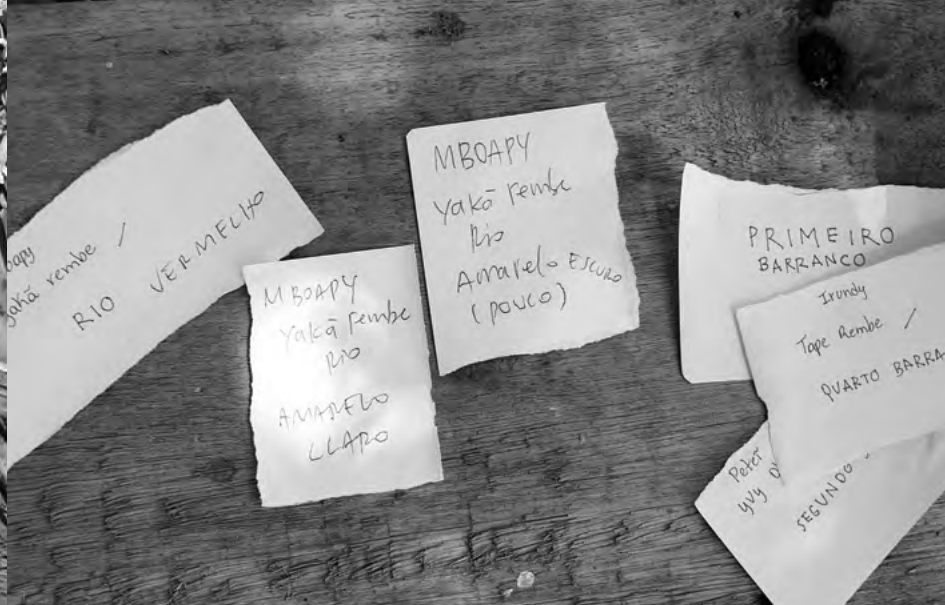 yakã rembe /
RIO VERMELHO
MBOAPY
Yakã rembe
Rio
AMARELO
CLARO
MBOAPY
Yakã rembe
Rio
Amarelo ESCURO
(POUCO)
PRIMEIRO
BARRANCO
Irundy
Tape Rembe /
QUARTO BARRA
yvy
SEGUNDO